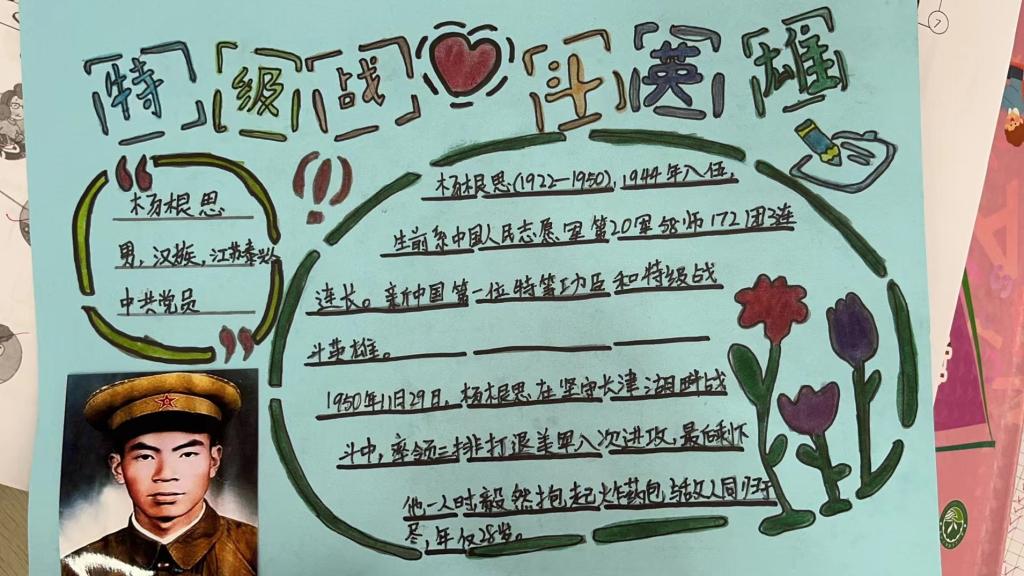 特级战斗英雄
杨根思
男，汉族，江苏泰兴人
中共党员
杨根思(1922—1950)，1944年入伍，
生前系中国人民志愿军第20军58师172团3连
连长。新中国第一位特等功臣和特级战
斗英雄。
1950年11月29日，杨根思在坚守长津湖畔战
斗中，率领三排打退美军八次进攻，最后剩下
他一人时毅然抱起炸药包与敌人同归于
尽，年仅28岁。